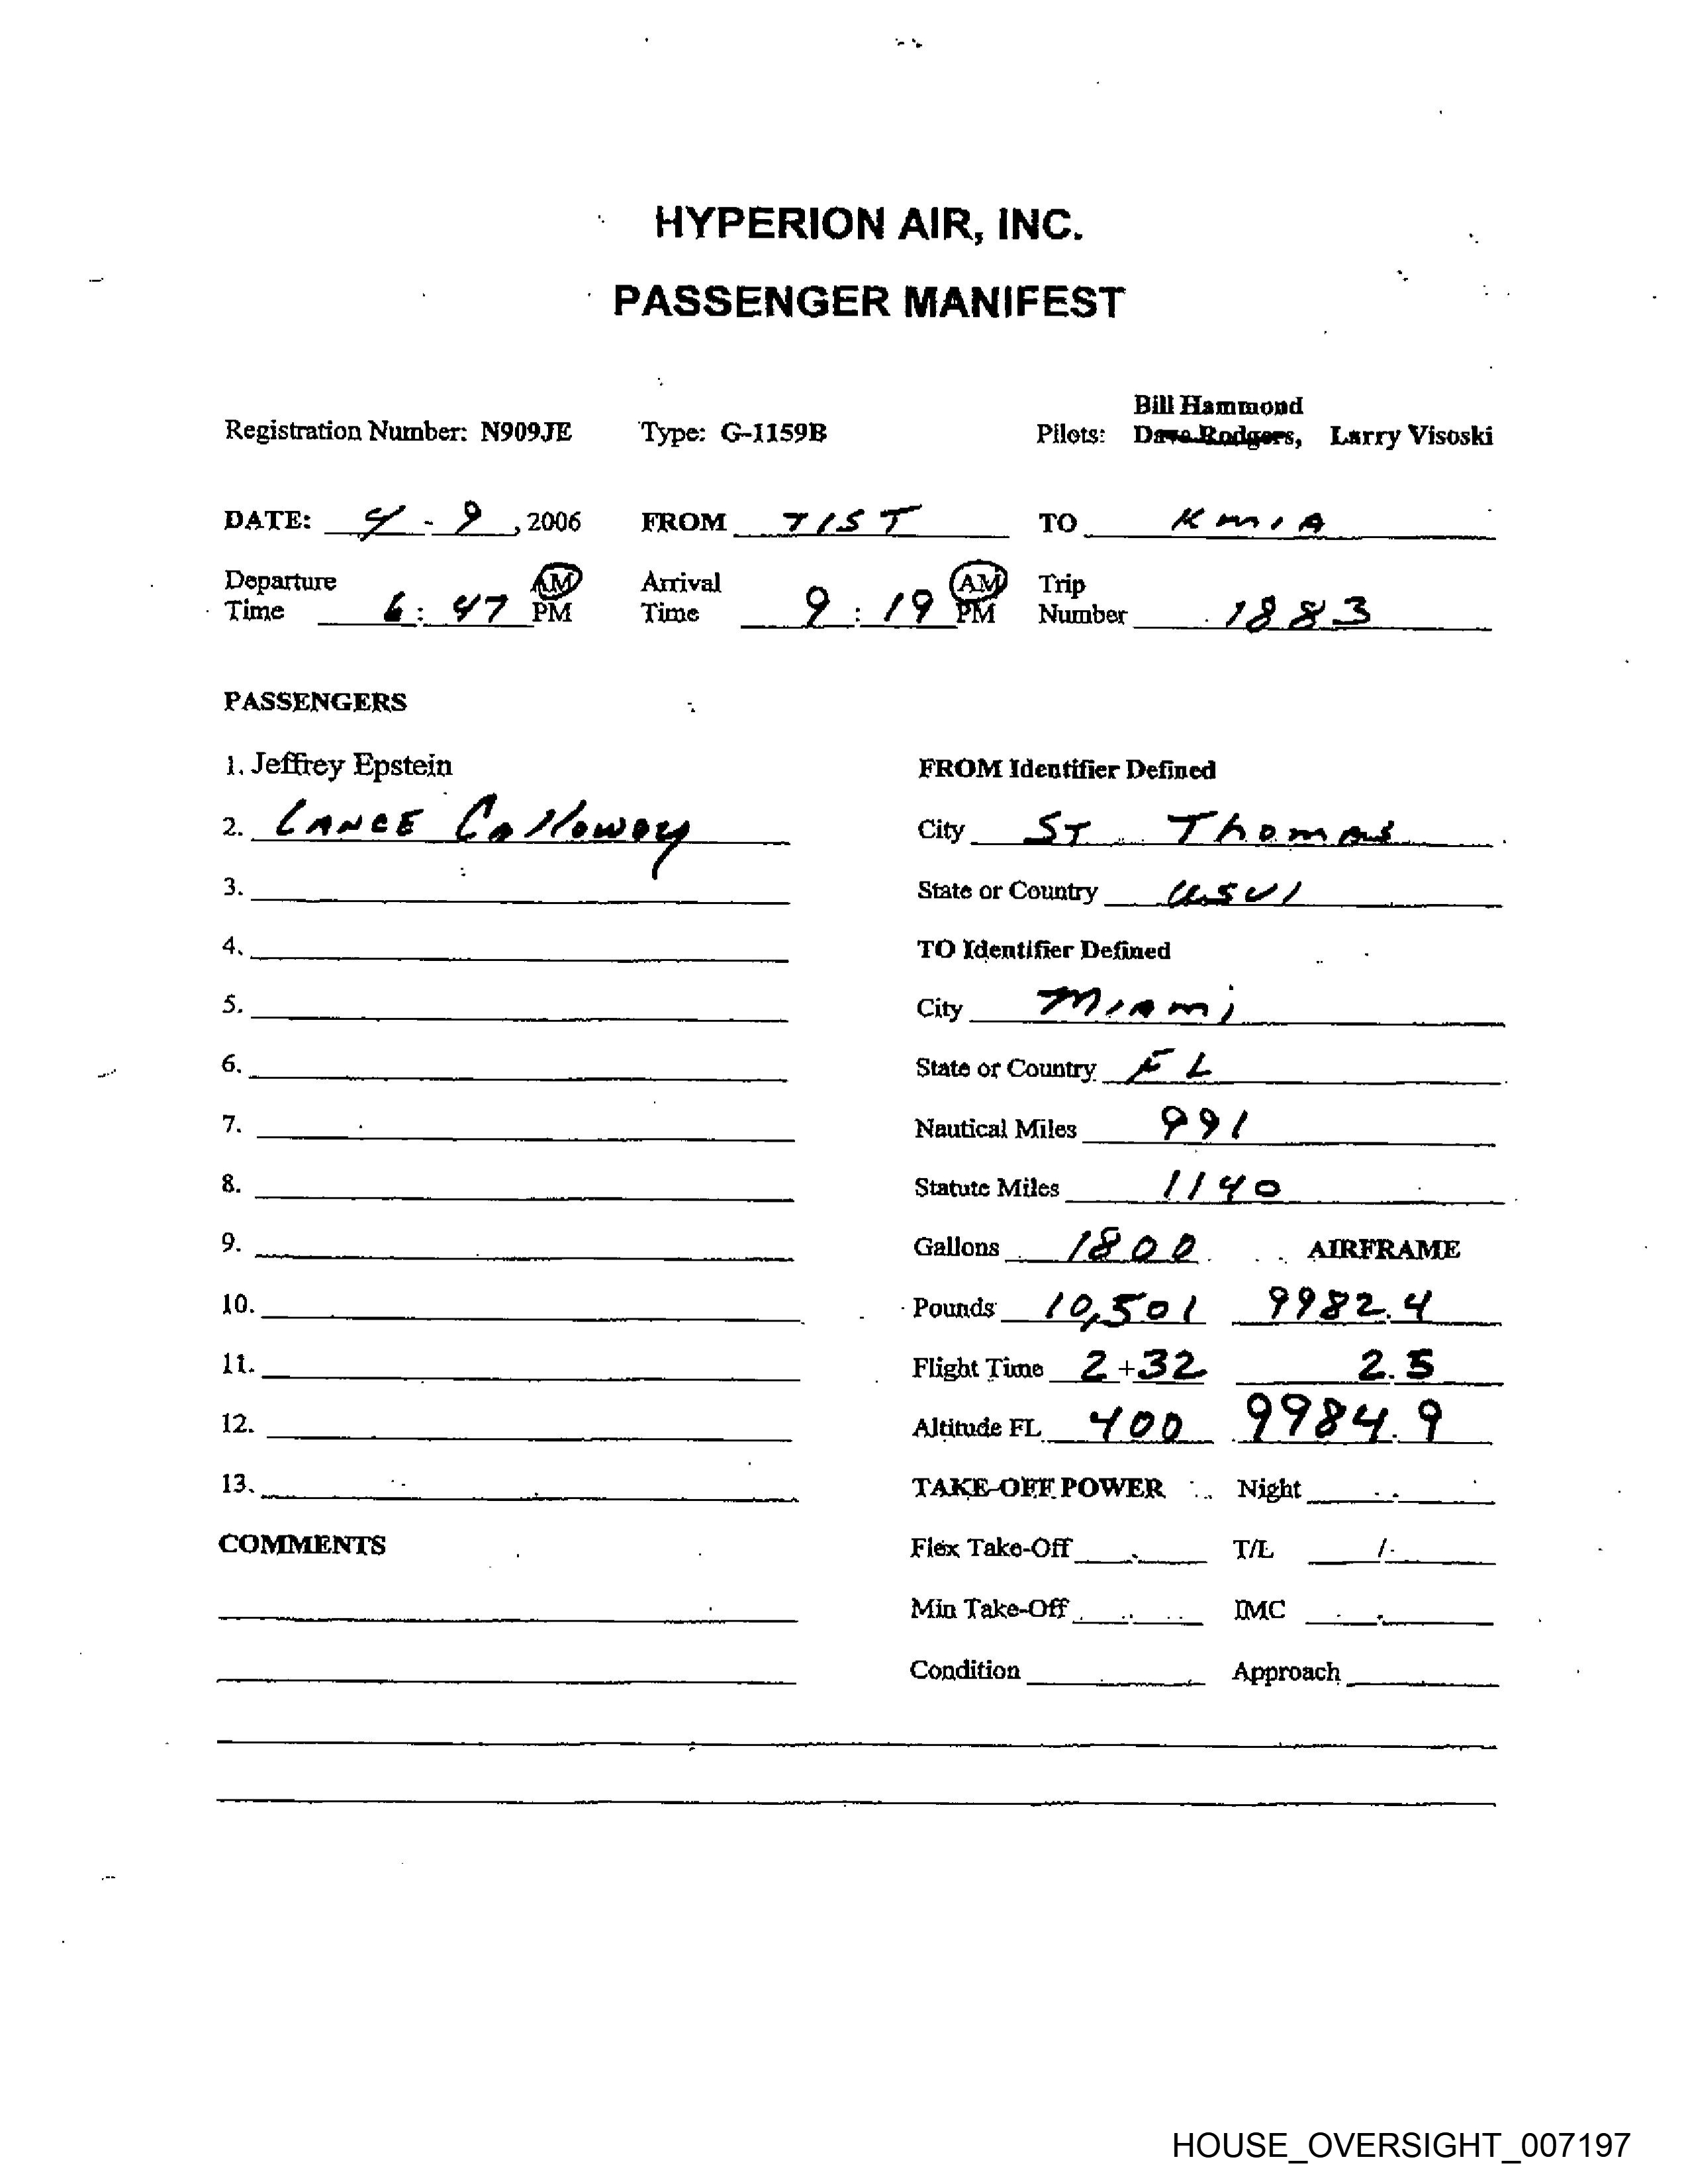 HYPERION AIR, INC.
PASSENGER MANIFEST
Bill Hammond
Registration Number: N909JE Type: G-1159B Pilots: Dave Rodgers, Larry Visoski
DATE: 4 - 9, 2006 FROM TIST TO KMIA
Departure AM Arrival AM Trip
Time 6:47 PM Time 9:19 PM Number 1883
PASSENGERS
1. Jeffrey Epstein FROM Identifier Defined
2. LANCE Calloway City ST Thomas
3. State or Country USVI
4. TO Identifier Defined
5. City Miami
6. State or Country FL
7. Nautical Miles 991
8. Statute Miles 1140
9. Gallons 1800 AIRFRAME
10. Pounds 10,501 9982.4
11. Flight Time 2+32 2.5
12. Altitude FL 400 9984.9
13. TAKE-OFF POWER Night
COMMENTS Flex Take-Off T/L /
Min Take-Off IMC
Condition Approach
HOUSE_OVERSIGHT_007197